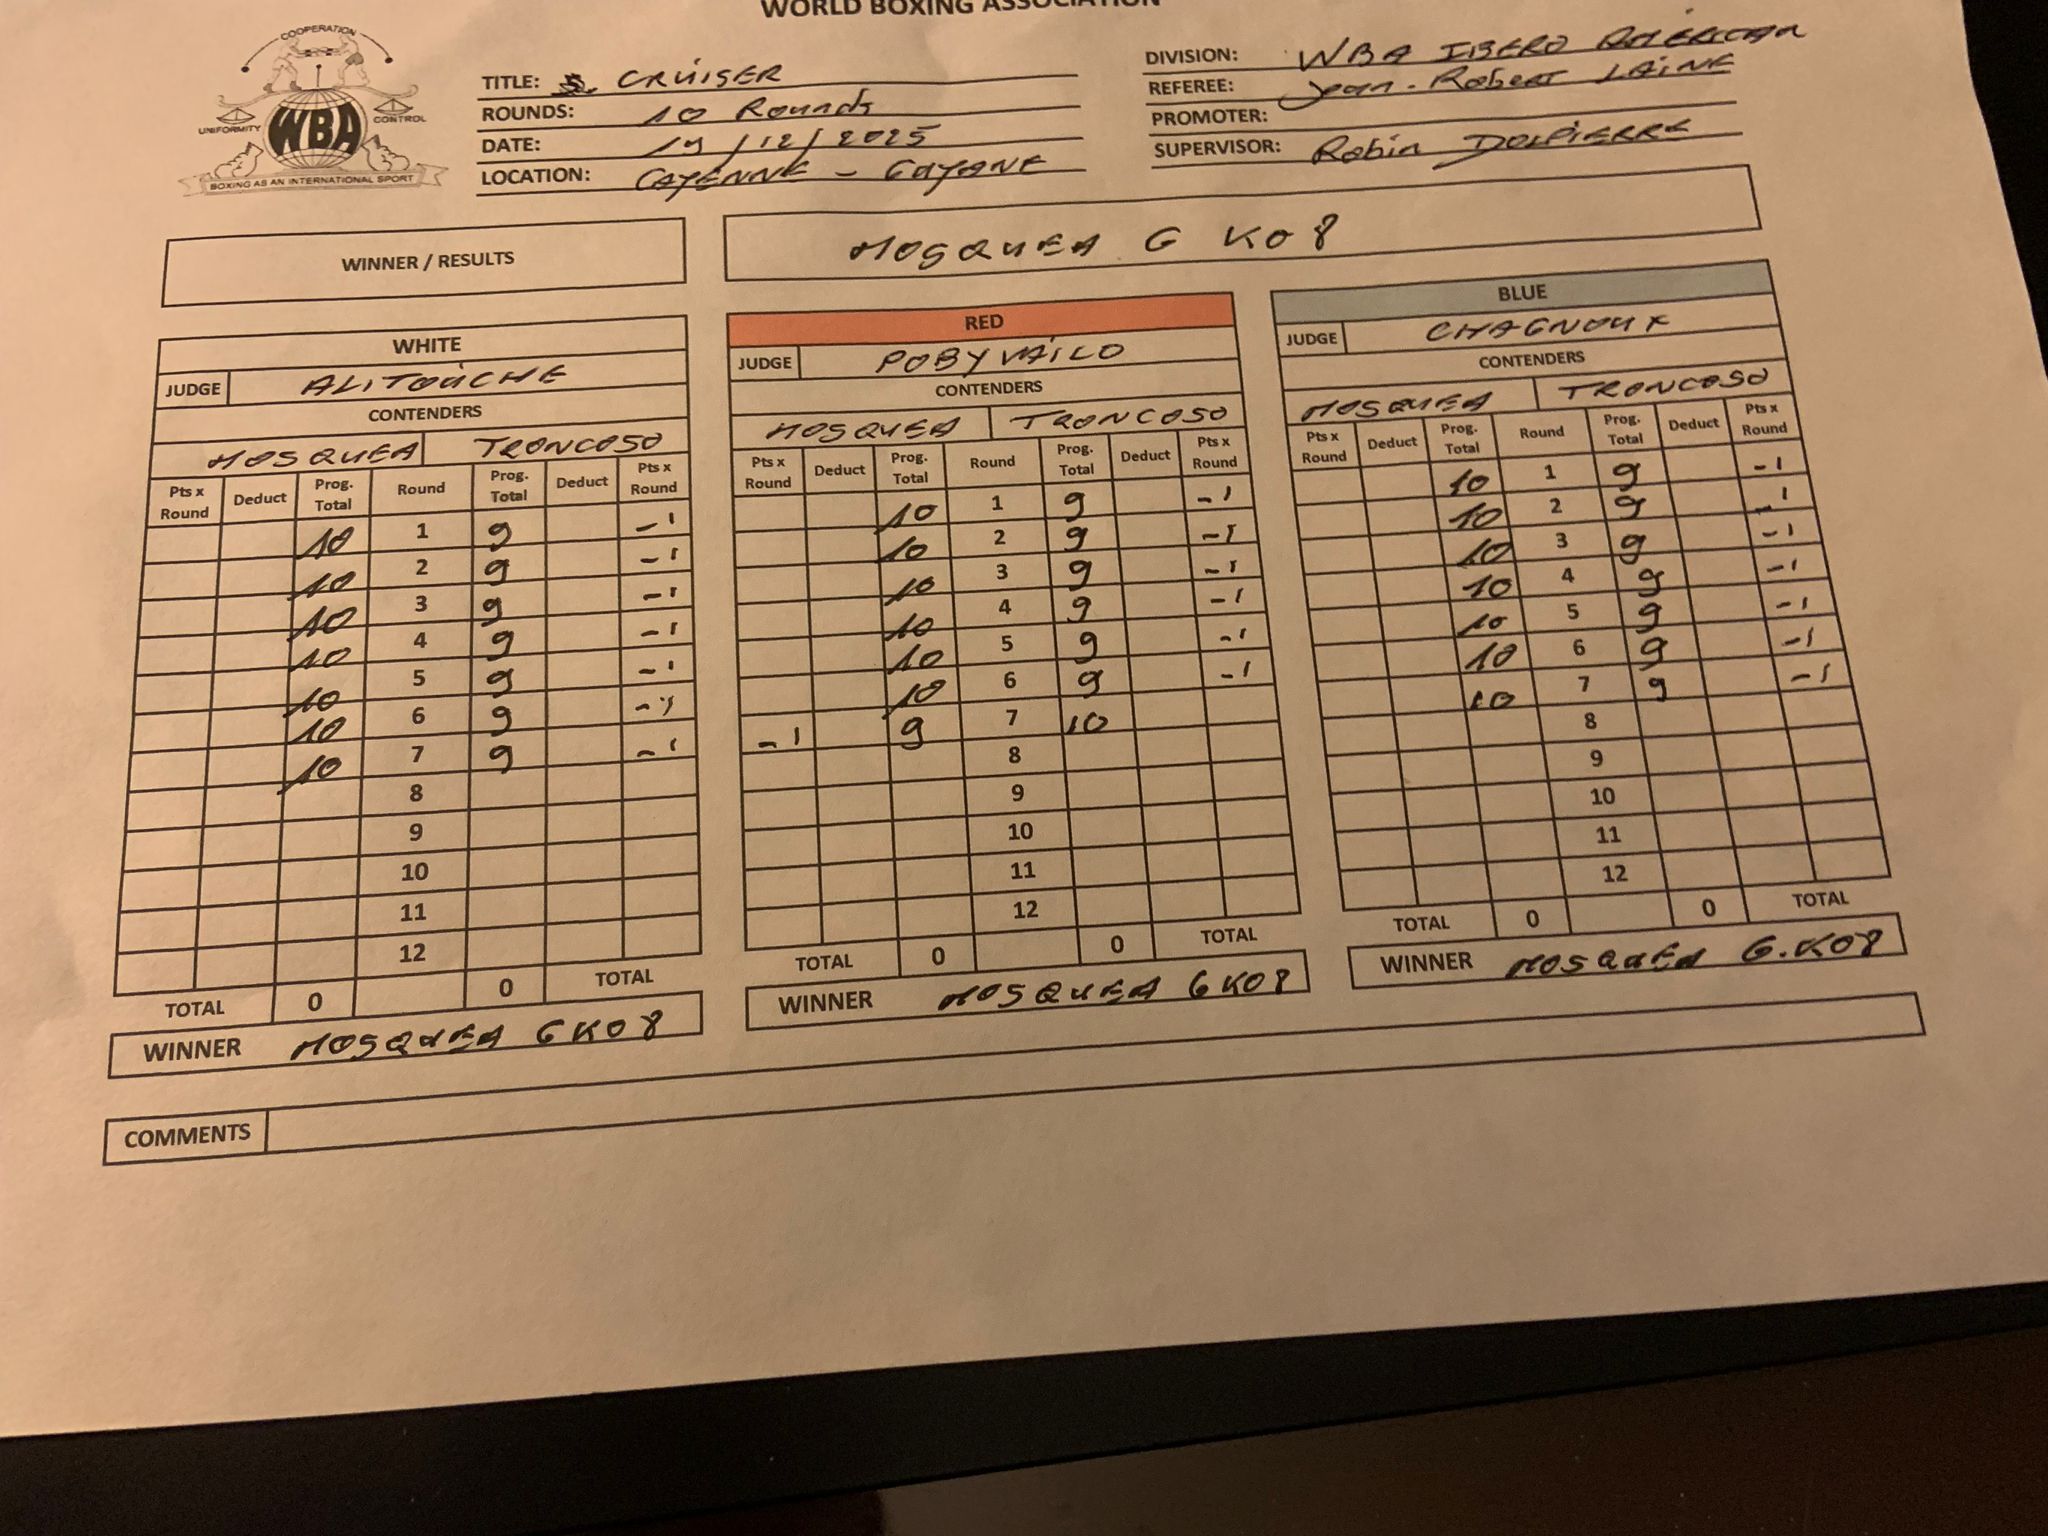 WORLD BOXING ASSOCIATION
COOPERATION
UNIFORMITY WBA CONTROL
BOXING AS AN INTERNATIONAL SPORT
TITLE: CRUISER
ROUNDS: 10 Rounds
DATE: 19/12/2025
LOCATION: CAYENNE - GUYANE
DIVISION: WBA IBERO AMERICAN
REFEREE: Jean-Robert LAINE
PROMOTER:
SUPERVISOR: Robin DOLPIERRE
WINNER / RESULTS
MOSQUEA G KO8
WHITE
JUDGE ALITOUCHE
CONTENDERS
MOSQUEA TRONCOSO
Pts x Round Deduct Prog. Total Round Prog. Total Deduct Pts x Round
10 1 9 -1
10 2 9 -1
10 3 9 -1
10 4 9 -1
10 5 9 -1
10 6 9 -1
10 7 9 -1
8
9
10
11
12
TOTAL 0 0 TOTAL
WINNER MOSQUEA G KO8
RED
JUDGE POBYVAILO
CONTENDERS
MOSQUEA TRONCOSO
Pts x Round Deduct Prog. Total Round Prog. Total Deduct Pts x Round
10 1 9 -1
10 2 9 -1
10 3 9 -1
10 4 9 -1
10 5 9 -1
10 6 9 -1
-1 9 7 10
8
9
10
11
12
TOTAL 0 0 TOTAL
WINNER MOSQUEA G KO8
BLUE
JUDGE CHAGNOUX
CONTENDERS
MOSQUEA TRONCOSO
Pts x Round Deduct Prog. Total Round Prog. Total Deduct Pts x Round
10 1 9 -1
10 2 9 -1
10 3 9 -1
10 4 9 -1
10 5 9 -1
10 6 9 -1
10 7 9 -1
8
9
10
11
12
TOTAL 0 0 TOTAL
WINNER MOSQUEA G.KO8
COMMENTS